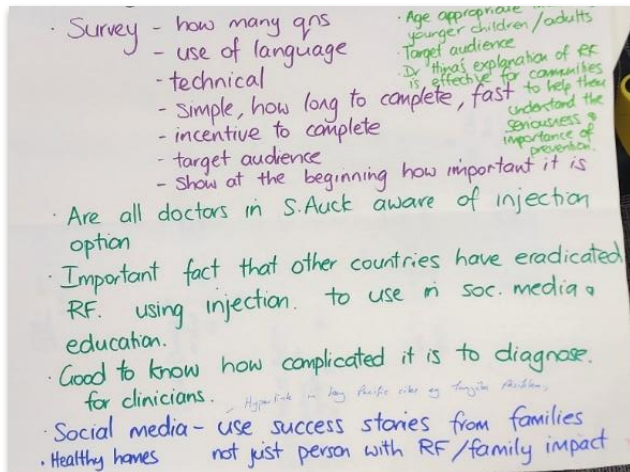 · Survey - how many qns
- use of language
- technical
- Simple, how long to complete, fast
- incentive to complete
- target audience
- Show at the beginning how important it is
· Age appropriate
younger children/adults
Target audience
· Dr Hina's explanation of RF
is effective for communities
to help them
understand the
seriousness &
importance of
prevention.
· Are all doctors in S.Auck aware of injection
option
· Important fact that other countries have eradicated
RF. using injection. to use in soc. media &
education.
· Good to know how complicated it is to diagnose.
for clinicians.
Hyperlink in key Pacific sites eg
· Social media - use success stories from families
not just person with RF/family impact
· Healthy homes